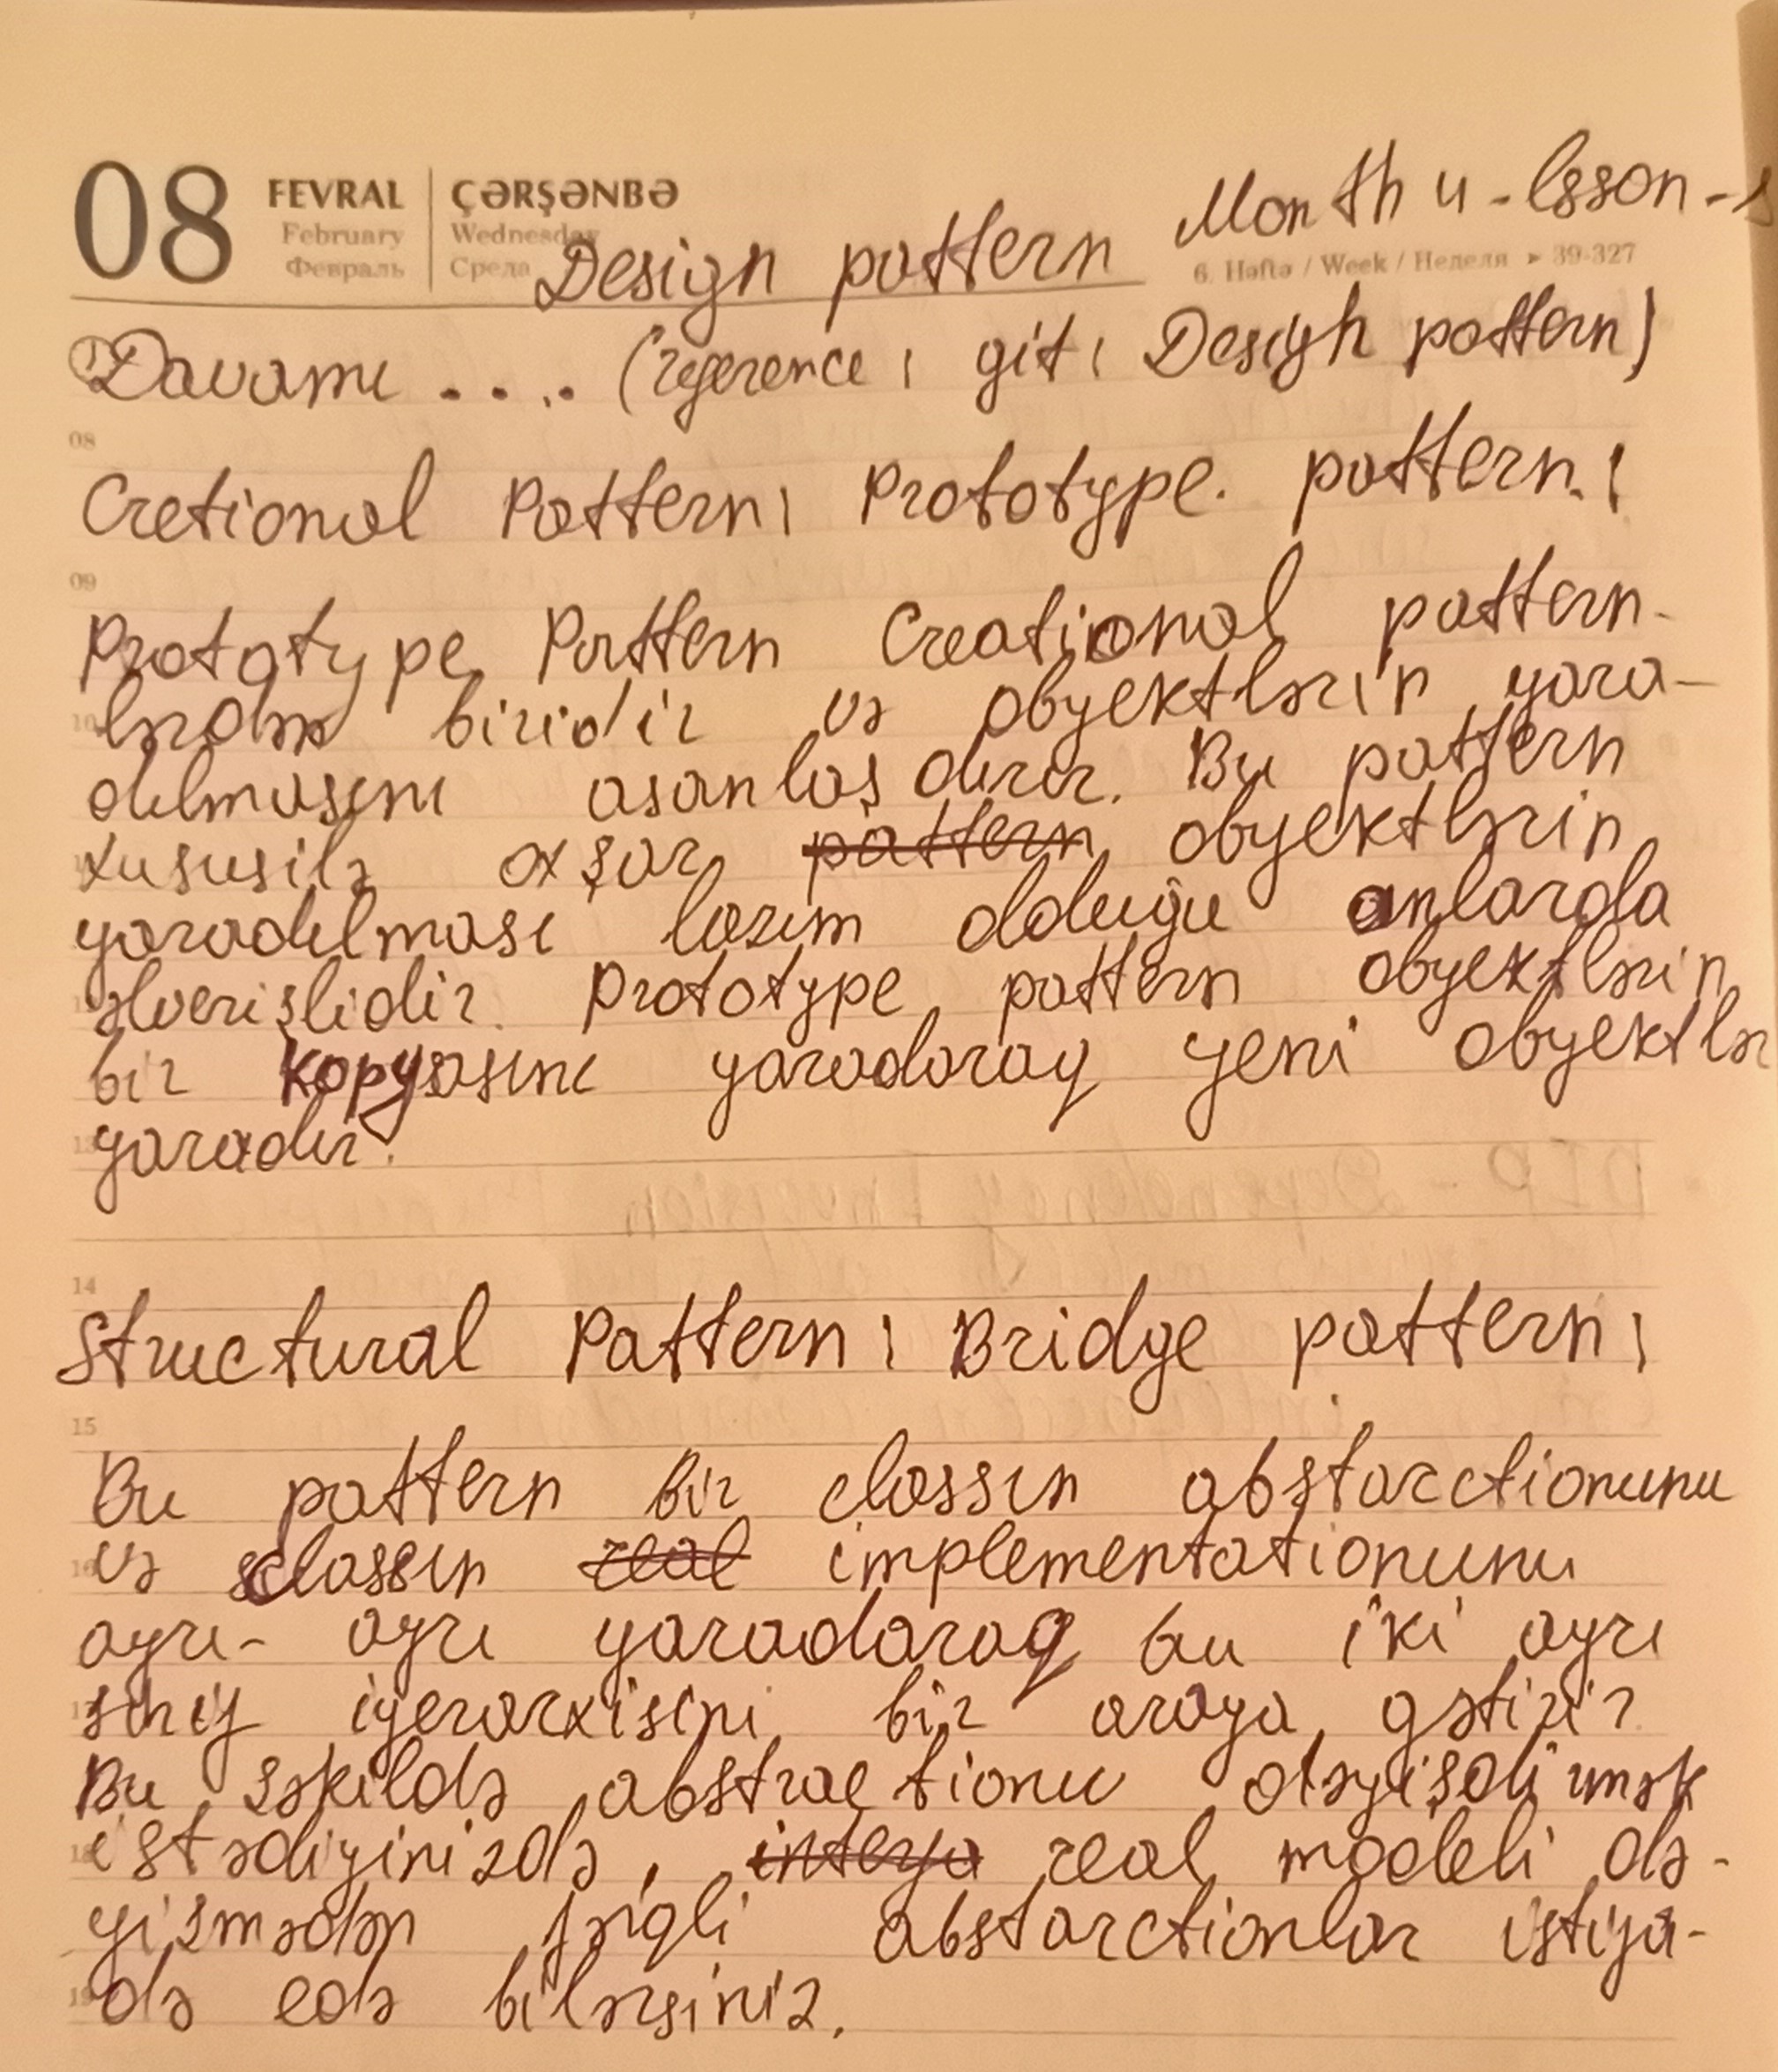 08 FEVRAL ÇƏRŞƏNBƏ
February Wednesday
Февраль Среда
6. Həftə / Week / Неделя ▸ 39-327
Month 4 - lsson -
Design pattern
① Davamı .... (reference: git: Design pattern)
08
Cretional Pattern: Prototype. pattern.:
09
Prototype Pattern Creational pattern-
lərdən biridir və obyektlərin yara-
dılmasını asanlaşdırır. Bu pattern
xususilə oxşar pattern obyektlərin
yaradılması lazım olduğu anlarda
əlverişlidir. Prototype pattern obyektlərin
bir kopyasını yaradaraq yeni obyektlər
yaradır.
14
Structural Pattern: Bridge pattern:
15
Bu pattern bir classın abstarctionunu
və classın real implementationunu
ayrı- ayrı yaradaraq bu iki ayrı
sinif iyerarxisini bir araya gətirir
Bu şəkildə abstractionu dəyişdirmək
istədiyinizdə, interfa real modeli də-
yişmədən fərqli abstarctionlar istifa-
də edə bilərsiniz.